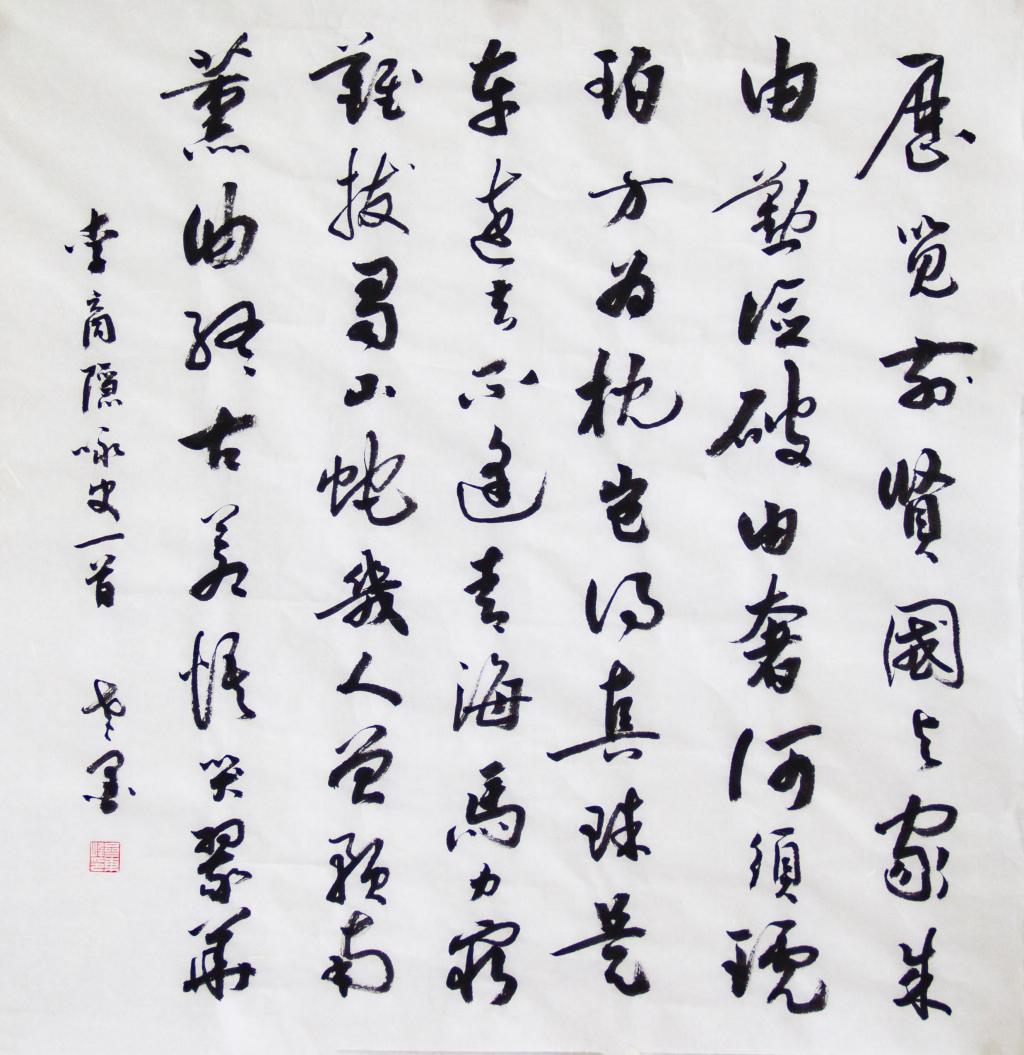 歷览前賢國与家成
由勤儉破由奢何須琥
珀方为枕岂得真珠是
车运去不逢青海馬力窮
難拔蜀山蛇幾人曾預南
薰曲終古蒼梧哭翠華
李商隱咏史一首